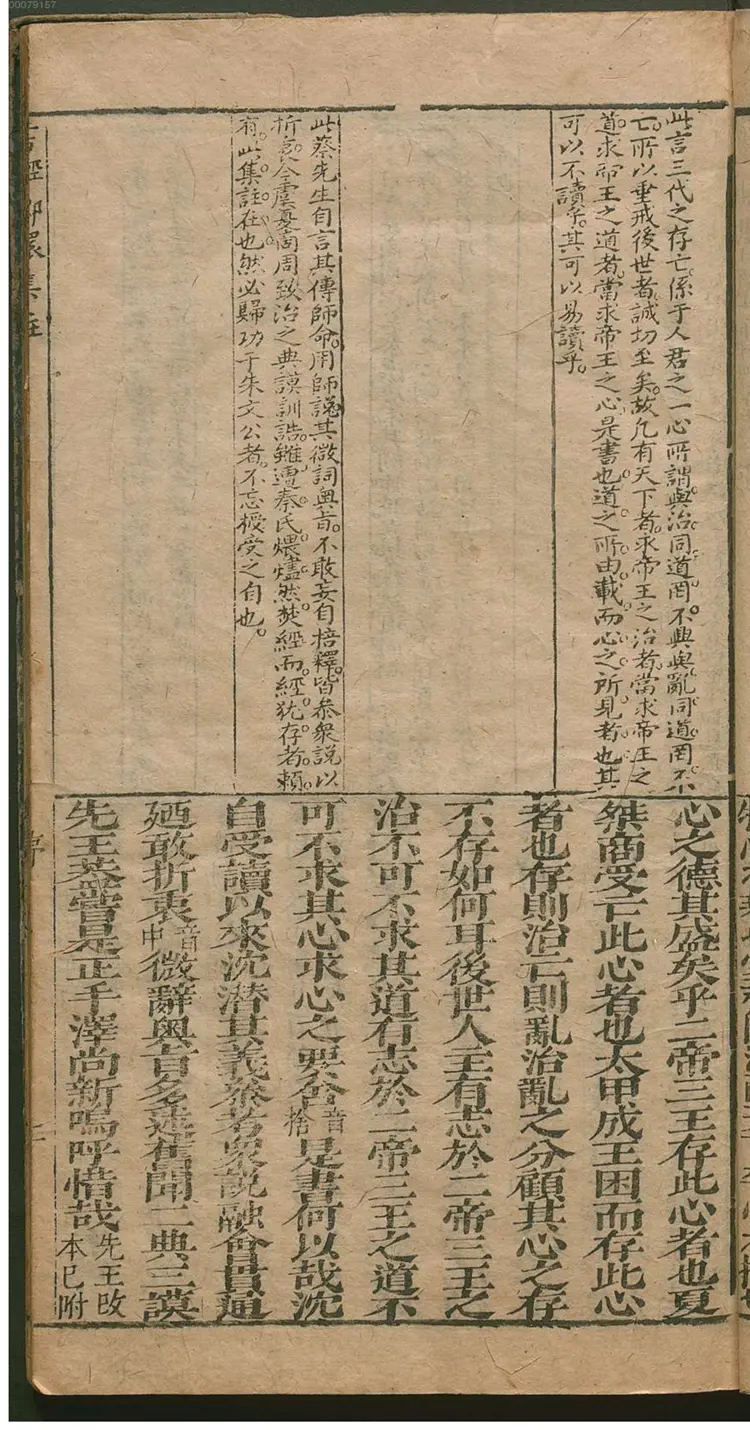 00079157
此言三代之存亡係于人君之一心所謂與治同道罔不興與亂同道罔不
亡所以垂戒後世者誠切至矣故凡有天下者求帝王之治者當求帝王之
道求帝王之道者當求帝王之心是書也道之所由載而心之所見者也其
可以不讀乎其可以易讀乎
此蔡先生自言其傳師命用師說其微詞奧旨不敢妄自揞釋皆叅衆說以
折衷今虞夏商周致治之典謨訓誥雖遭秦氏煨燼然焚經而經犹存者頼
有此集註在也然必歸功于朱文公者不忘授受之自也
心之德其盛矣乎二帝三王存此心者也夏
桀商受亡此心者也太甲成王困而存此心
者也存則治亡則亂治亂之分顧其心之存
不存如何耳後世人主有志於二帝三王之
治不可不求其道有志於二帝三王之道不
可不求其心求心之要舍音捨是書何以哉沈
自受讀以來沈潛其義叅考衆說融會貫通
廼敢折衷音中微辭奧旨多述舊聞二典三謨
先王葢嘗是正手澤尚新嗚呼惜哉先王改本已附
書經 集註
序